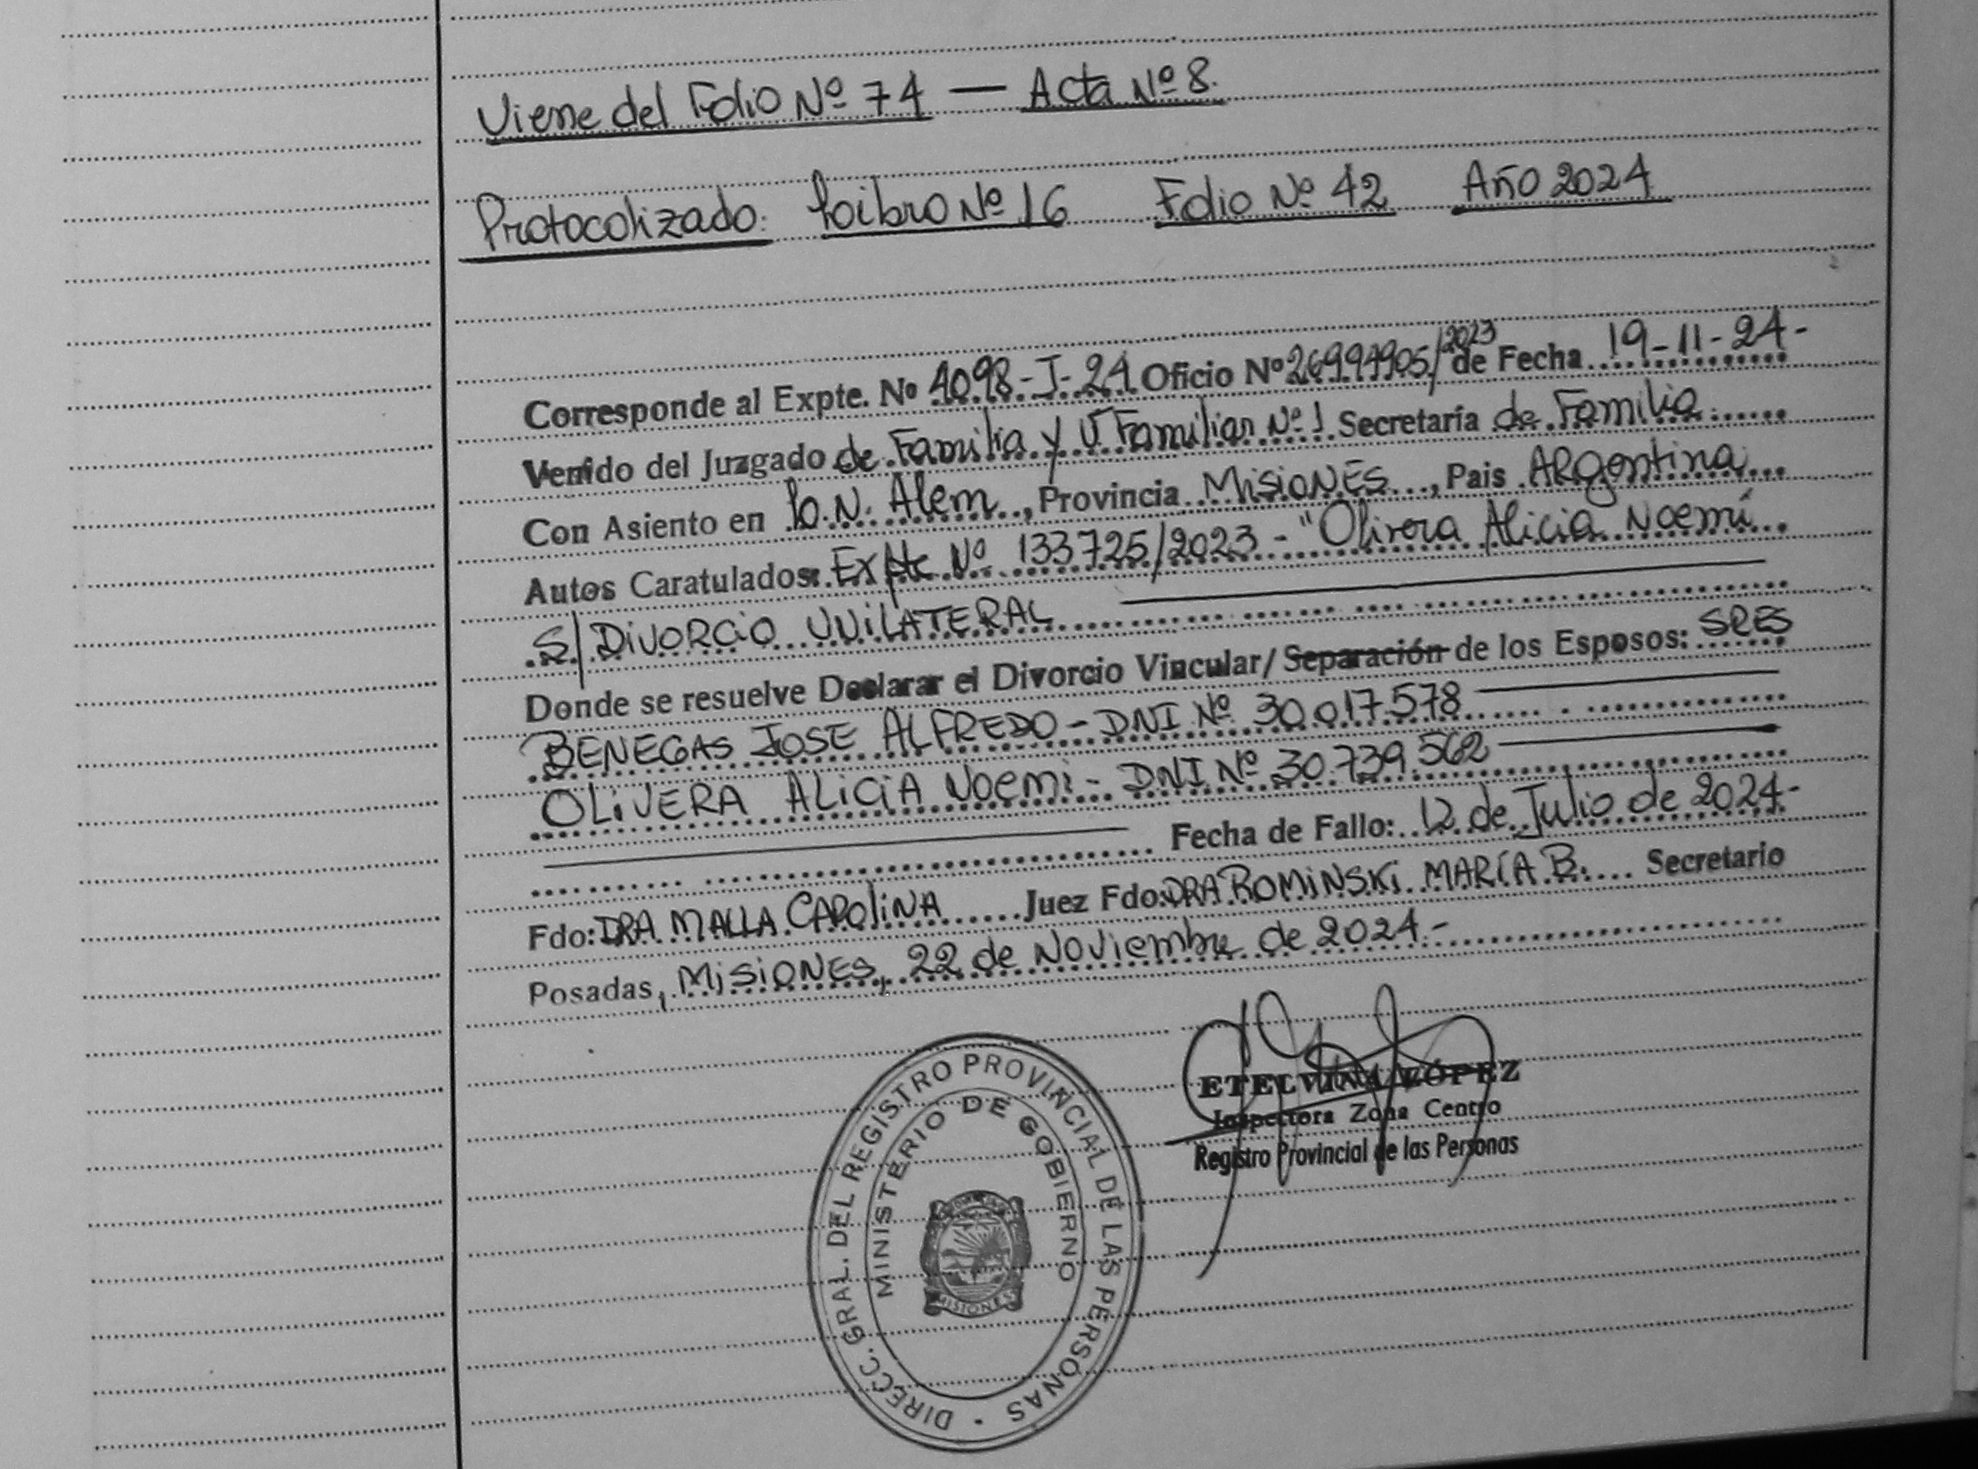 Viene del Folio Nº 74 — Acta Nº 8.
Protocolizado: Libro Nº 16 Folio Nº 42 Año 2024
Corresponde al Expte. Nº 4098-I-24 Oficio Nº 26994905/2023 de Fecha 19-11-24-
Venido del Juzgado de Familia y V. Familiar Nº 1 Secretaría de Familia
Con Asiento en L.N. Alem, Provincia Misiones, Pais Argentina
Autos Caratulados: Expte Nº 133725/2023 - "Olivera Alicia Noemí
S/ Divorcio Unilateral
Donde se resuelve Declarar el Divorcio Vincular/ Separación de los Esposos: SRES
BENEGAS JOSE ALFREDO - DNI Nº 30.017.578
OLIVERA ALICIA NOEMI - DNI Nº 30.739.562
Fecha de Fallo: 12 de Julio de 2024-
Fdo: DRA MALLA CAROLINA Juez Fdo: DRA ROMINSKI MARÍA B. Secretario
Posadas, Misiones, 22 de Noviembre de 2024.-
ETELVINA LÓPEZ
Inspectora Zona Centro
Registro Provincial de las Personas
DIRECC. GRAL. DEL REGISTRO PROVINCIAL DE LAS PERSONAS
MINISTERIO DE GOBIERNO
MISIONES